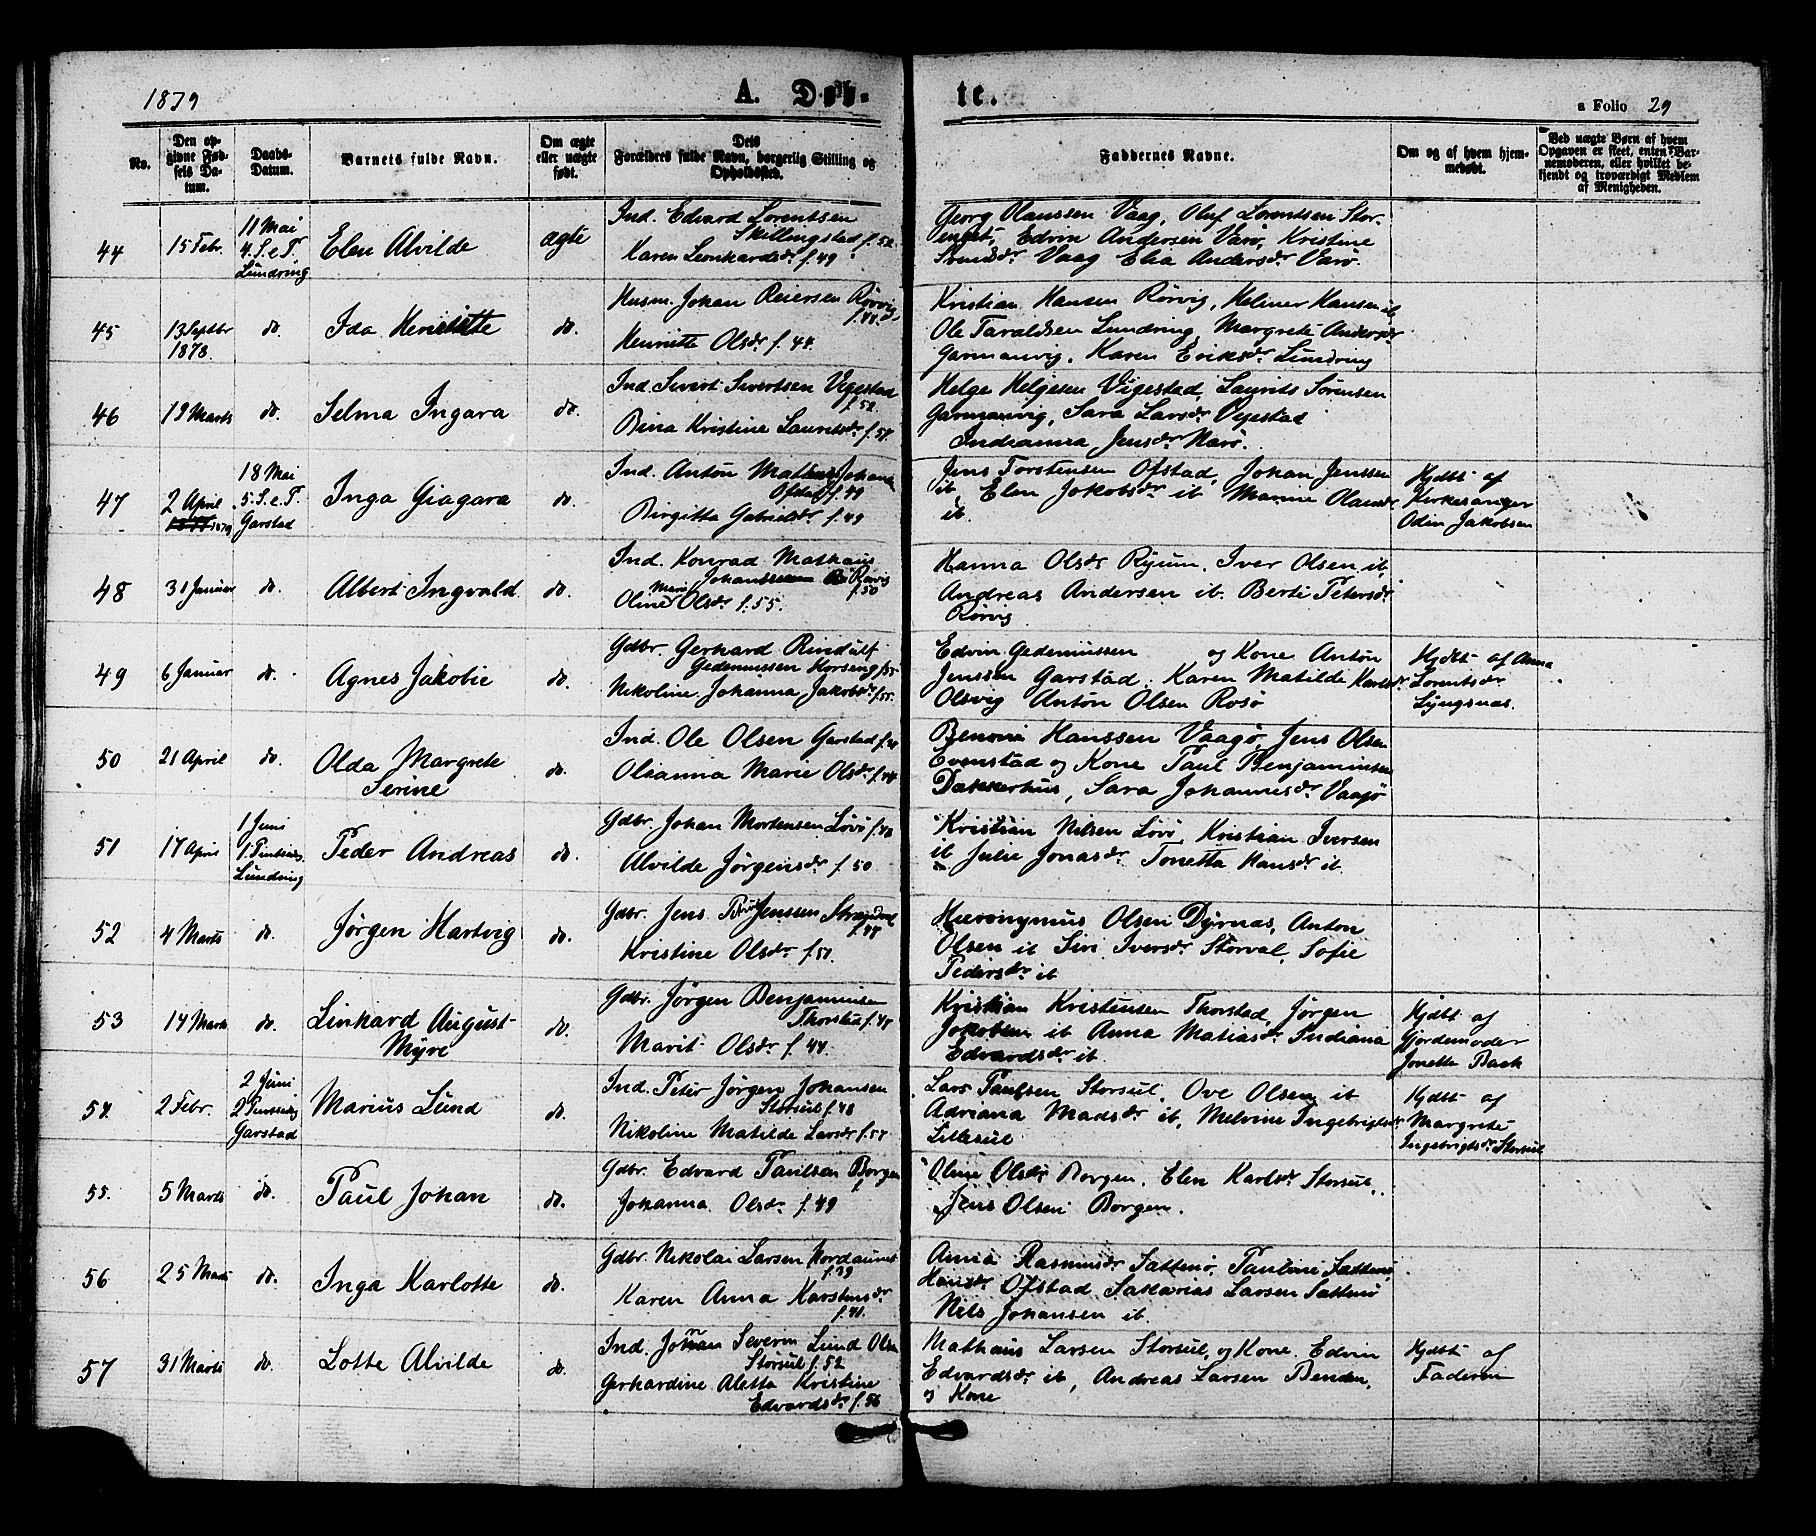 1879
A. Døb-
te.
a Folio 29
No.
Den opgivne Fødsels Datum.
Daabs-Datum.
Barnets fulde Navn.
Om ægte eller uægte født.
Dets Forældres fulde Navn, borgerlig Stilling og Opholdssted.
Faddernes Navne.
Om og af hvem hjemmedøbt.
Ved uægte Børn af hvem Opgaven er skeet, enten Barnemoderen, eller hvilket bekjendt og troværdigt Medlem af Menigheden.
44 15 Febr. 11 Mai 4. S. e. P. Lundring Elen Alvilde ægte
Ind. Edvard Lorentsen
Skillingstad f. 52
Karen Leonhardsdr f. 49
Georg Olaussen Vaag, Oluf Lorentsen Stor-
enget, Edvin Andersen Varø, Kristine
Vaag Elia Andersdr Varø.
45 13 Septbr 1878. do. Ida Henriette do.
Husm. Johan Reiersen Rørvig
f. 48.
Henriette Olsdr f. 44.
Kristian Hansen Rørvig, Helmer Hansen ib
Ole Taraldsen Lundring, Margrete Andersdr
Garmanvig, Karen Eriksdr Lundring
46 19 Marts do. Selma Ingara do.
Ind. Sivert Sivertsen Vegestad
f. 52.
Bina Kristine Lauritsdr f. 57.
Helge Helgesen Vigestad, Laurits Sørensen
Garmanvig, Sara Larsdr Vejestad
Indianna Jensdr Narø.
47 2 April 1879 18 Mai 5. S. e. P. Garstad Inga Giagara do.
Ind. Anton Johan
Ofdal f. 49
Birgitta Gabrielsdr f. 49
Jens Torstensen Ofstad, Johan Jenssen
ib, Elen Jakobsdr ib Manne Olausdr
ib.
Hjdbt af
Kirkesanger
Odin Jakobsen
48 31 Januar do. Albert Ingvald do.
Ind. Konrad Mathæus
Johanssen Rørvig
f. 50
Oline Marie Olsdr f. 55.
Hanna Olsdr Ryum, Iver Olsen ib,
Andreas Andersen ib. Berti Petersdr
Rørvig
49 6 Januar do. Agnes Jakobie do.
Gdbr. Gerhard Rindulf
Gedemussen Horseng f. 55
Nikoline Johanna Jakobsdr f. 55.
Edvin Gedemussen og Kone Anton
Jenssen Garstad. Karen Matilde Karlsdr
Olsvig Anton Olsen Rosø
Hjdbt af Anna
Lorentsdr
Lyngsnas.
50 21 April do. Olda Margrete Serine do.
Ind. Ole Olsen Garstad
Olianna Marie Olsdr f. 44
Benoni Hanssen Vaagø, Jens Olsen
Evenstad og Kone Paul Benjaminsen
Dakkerhus, Sara Johannesdr Vaagø
51 17 April 1 Juni 1 Pintsedg Lundring Peder Andreas do.
Gdbr. Johan Mortensen Løvø f. 48
Alvilde Jørgensdr f. 50
Kristian Nilsen Løvø, Kristian Iversen
ib Julie Jonasdr Tonetta Hansdr ib.
52 4 Marts do. Jørgen Hartvig do.
Gdbr. Jens Petrus Jenssen
Kristine Olsdr f. 51.
Hieronymus Olsen Dyrnas, Anton
Olsen ib Siri Iversdr Storval, Sofie
Pedersdr ib
53 14 Marts do. Linhard August Myre do.
Gdbr. Jørgen Benjaminsen
Thorstad f. 48
Marit Olsdr f. 44.
Kristian Kristensen Thorstad, Jørgen
Jakobsen ib Anna Matiasdr Indiana
Edvardsdr ib.
Hjdbt af
Gjordemoder
Jonette Bach
54. 2 Febr. 2 Juni 2 Pintsedg Garstad Marius Lund do.
Ind. Peter Jørgen Johansen
Storsul f. 48
Nikoline Matilde Larsdr f. 57
Lars Paulsen Storsul, Ove Olsen ib
Adriana Madsdr ib, Melvine Ingebrigtsdr
Lillesul
Hjdbt af
Margrete
Ingebrigtsdr Storsul
55. 5 Marts do. Paul Johan do.
Gdbr. Edvard Paulsen Borgen
Johanna Olsdr f. 49
Oline Olsdr Borgen, Elen Karlsdr Storsul,
Jens Olsen Borgen.
56 25 Marts do. Inga Karlotte do.
Gdbr. Nikolai Larsen Nordaunet
f. 39
Karen Anna Karstensdr
f. 41.
Anna Rasmusdr Sattenø, Pauline Sattenø
Hansdr Ofstad Sakarias Larsen Sattenø
Nils Johansen ib.
57 31 Marts do. Lotte Alvilde do.
Ind. Johan Severin Lund Olsen
Storsul f. 52
Gerhardine Aletta Kristine
Edvardsdr f. 56
Mathæus Larsen Storsul, og Kone. Edvin
Edvardsdr ib, Andreas Larsen Benden,
og Kone
Hjdbt af
Faderen